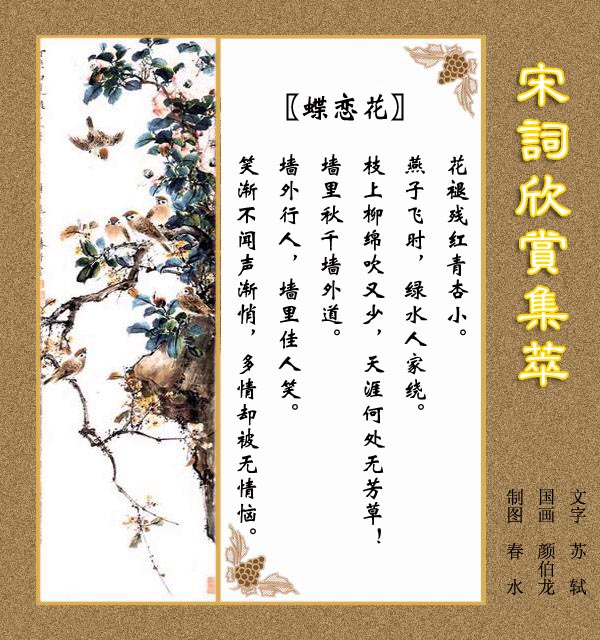 宋詞欣賞集萃
〖蝶恋花〗
花褪残红青杏小。
燕子飞时，绿水人家绕。
枝上柳绵吹又少，天涯何处无芳草！
墙里秋千墙外道。
墙外行人，墙里佳人笑。
笑渐不闻声渐悄，多情却被无情恼。
文字 苏轼
国画 颜伯龙
制图 春水